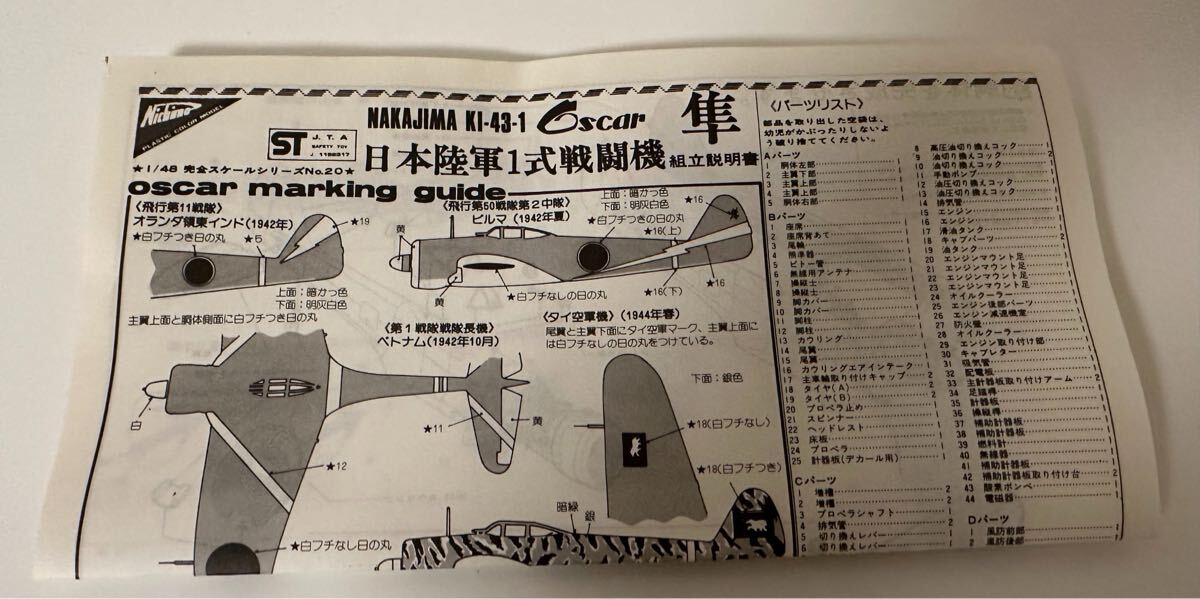 Nichimo
PLASTIC COLOR MODEL
ST
J. T. A
SAFETY TOY
NAKAJIMA KI-43-1 Oscar 隼
日本陸軍1式戦闘機 組立説明書
★1/48 完全スケールシリーズNo.20★
oscar marking guide
〈飛行第11戦隊〉
オランダ領東インド(1942年)
★白フチつき日の丸
★5
★19
上面:暗かっ色
下面:明灰白色
主翼上面と胴体側面に白フチつき日の丸
〈飛行第50戦隊第2中隊〉
ビルマ(1942年夏)
上面:暗かっ色
下面:明灰白色
★白フチつきの日の丸
★16(上)
★16
黄
黄
★白フチなしの日の丸
★16(下)
★16
〈第1戦隊戦隊長機〉
ベトナム(1942年10月)
白
★11
黄
★12
★白フチなし日の丸
〈タイ空軍機〉(1944年春)
尾翼と主翼下面にタイ空軍マーク、主翼上面に
は白フチなしの日の丸をつけている。
下面:銀色
★18(白フチなし)
★18(白フチつき)
暗緑
銀
〈パーツリスト〉
部品を取り出した空袋は、
幼児がかぶったりしないよ
う破り捨ててください。
Aパーツ
1 胴体左部
2 主翼下部
3 主翼上部
4 主翼上部
5 胴体右部
Bパーツ
1 座席
2 座席背あて
3 尾輪
4 照準器
5 ピトー管
6 無線用アンテナ
7 操縦士
8 操縦士
9 脚カバー
10 脚カバー
11 脚柱
12 脚柱
13 カウリング
14 尾翼
15 尾翼
16 カウリングエアインテーク 1
17 主車輪取り付けキャップ 2
18 タイヤ(A) 2
19 タイヤ(B) 2
20 プロペラ止め 1
21 スピンナー 1
22 ヘッドレスト 1
23 床板 1
24 プロペラ 1
25 計器板(デカール用) 1
Cパーツ
1 増槽 2
2 増槽 2
3 プロペラシャフト 1
4 排気管 2
5 切り換えレバー 1
6 切り換えレバー 1
8 高圧油切り換えコック 1
9 油切り換えコック 2
10 油切り換えコック 1
11 手動ポンプ 1
12 油圧切り換えコック
13 油圧切り換えコック
14 排気管
15 エンジン
16 エンジン
17 滑油タンク
18 キャブパーツ
19 油タンク
20 エンジンマウント足
21 エンジンマウント足
22 エンジンマウント足
23 エンジンマウント足
24 オイルクーラー
25 エンジン後部パーツ
26 エンジン減速機室
27 防火壁
28 オイルクーラー
29 エンジン取り付け部
30 キャブレター
31 吸気管
32 配電板
33 主計器板取り付けアーム 2
34 足踏桿
35 計器板
36 操縦桿
37 補助計器板
38 補助計器板
39 燃料計
40 無線器
41 補助計器板
42 補助計器板取り付け台 2
43 酸素ボンベ
44 電磁器
Dパーツ
1 風防前部
2 風防後部